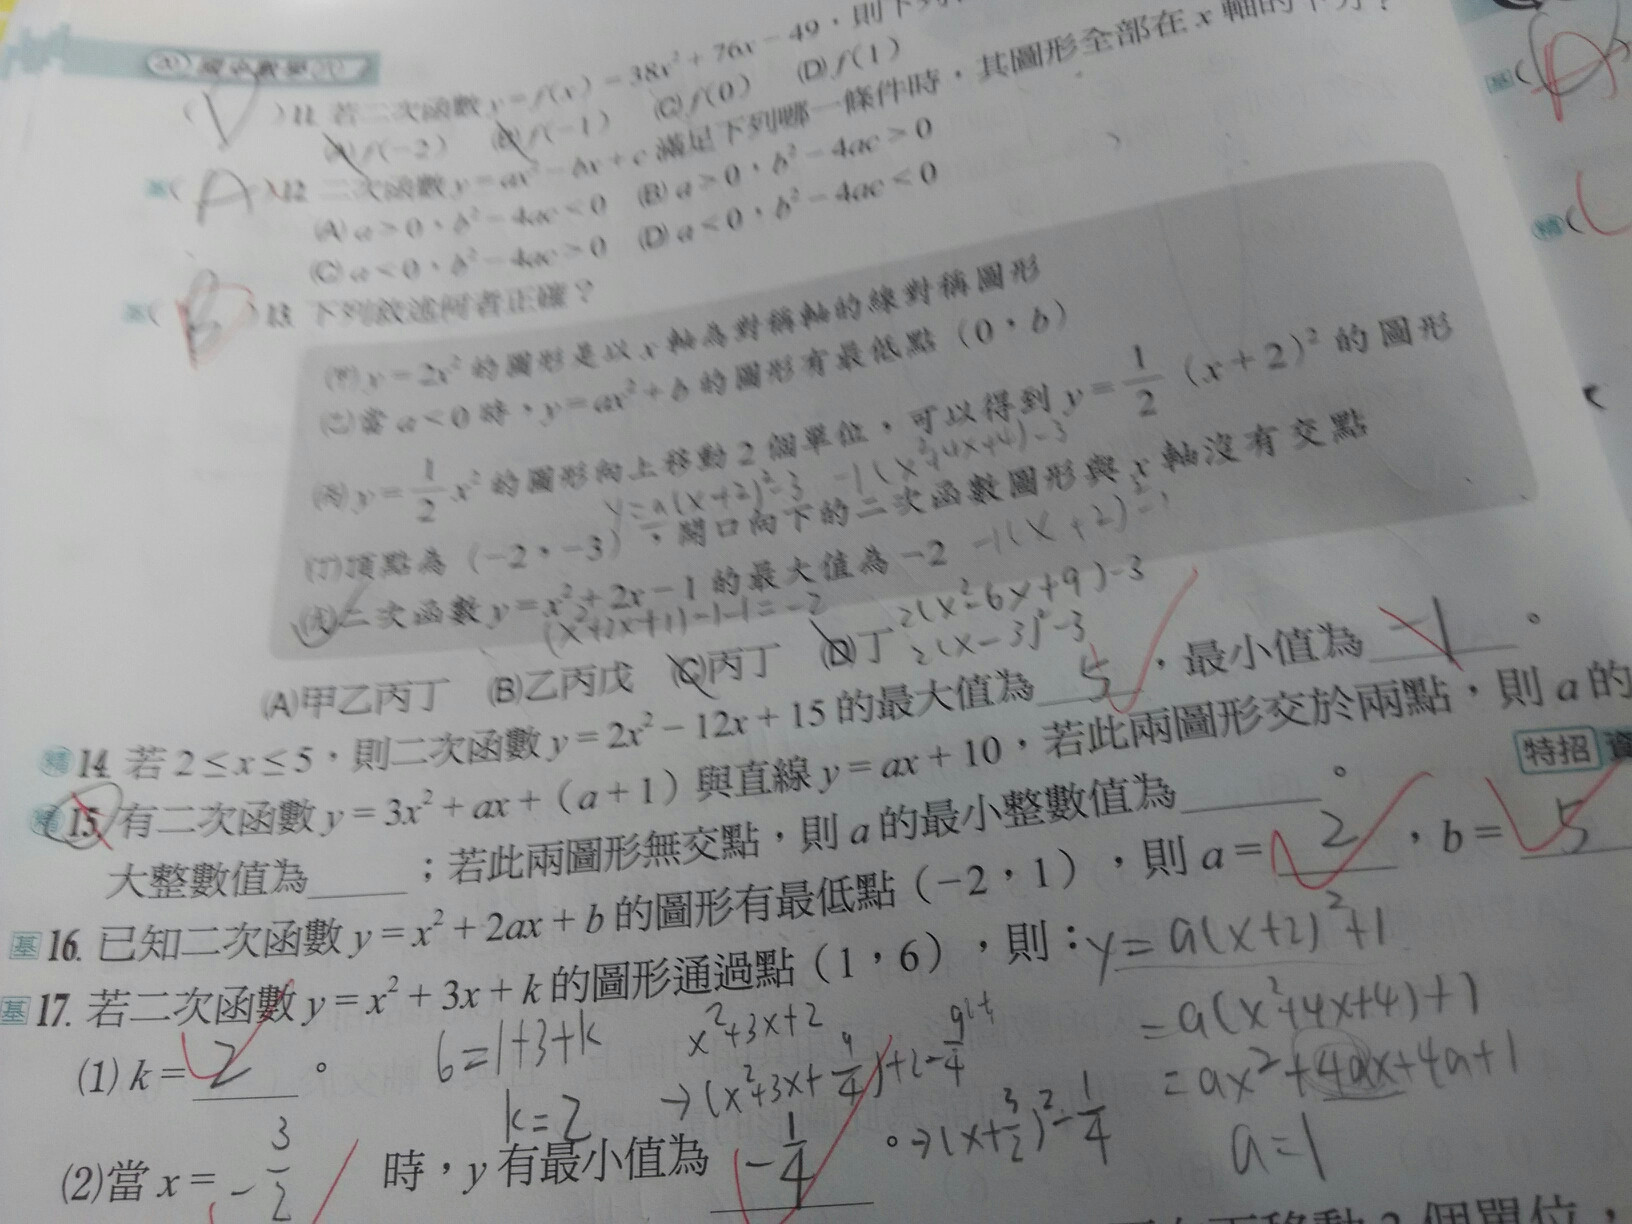 11. 若二次函數 y=f(x)=38x²+76x-49，則下列
(A) f(-2) (B) f(-1) (C) f(0) (D) f(1)
( A )12. 二次函數 y=ax²-bx+c 滿足下列哪一條件時，其圖形全部在 x 軸的下方？
(A) a>0，b²-4ac<0 (B) a>0，b²-4ac>0
(C) a<0，b²-4ac>0 (D) a<0，b²-4ac<0
( B )13. 下列敘述何者正確？
(甲) y=2x² 的圖形是以 x 軸為對稱軸的線對稱圖形
(乙)當 a<0 時，y=ax²+b 的圖形有最低點（0，b）
(丙) y=1/2 x² 的圖形向上移動 2 個單位，可以得到 y=1/2（x+2）² 的圖形
y=a(x+2)²-3 -1(x²+4x+4)-3
(丁)頂點為（-2，-3），開口向下的二次函數圖形與 x 軸沒有交點
(戊)二次函數 y=x²+2x-1 的最大值為 -2
(x²+2x+1)-1-1=-2
2(x²-6x+9)-3
(A)甲乙丙丁 (B)乙丙戊 (C)丙丁 (D)丁
2(x-3)²-3
精 14. 若 2≤x≤5，則二次函數 y=2x²-12x+15 的最大值為 5，最小值為 -1。
精 15. 有二次函數 y=3x²+ax+（a+1）與直線 y=ax+10，若此兩圖形交於兩點，則 a 的
大整數值為____；若此兩圖形無交點，則 a 的最小整數值為____。
特招
基 16. 已知二次函數 y=x²+2ax+b 的圖形有最低點（-2，1），則 a= 2，b= 5
y=a(x+2)²+1
=a(x²+4x+4)+1
=ax²+4ax+4a+1
a=1
基 17. 若二次函數 y=x²+3x+k 的圖形通過點（1，6），則：
(1) k= 2。
6=1+3+k
k=2
x²+3x+2
→(x²+3x+9/4)+2-9/4
→(x+3/2)²-1/4
(2)當 x= -3/2 時，y 有最小值為 -1/4。